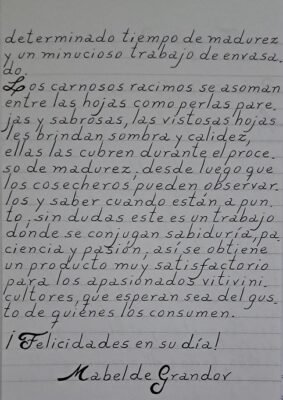 determinado tiempo de madurez
y un minucioso trabajo de envasa
do.
Los carnosos racimos se asoman
entre las hojas como perlas pare
jas y sabrosas, las vistosas hojas
les brindan sombra y calidez,
ellas las cubren durante el proce
so de madurez, desde luego que
los cosecheros pueden observar
los y saber cuando están a pun
to, sin dudas este es un trabajo
dónde se conjugan sabiduría, pa
ciencia y pasión, así se obtiene
un producto muy satisfactorio
para los apasionados vitivini
cultores, que esperan sea del gus
to de quiénes los consumen.
¡Felicidades en su día!
Mabel de Grandov